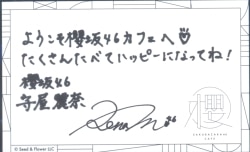 ようこそ櫻坂46カフェへ
たくさんたべてハッピーになってね!
櫻坂46
守屋麗奈
櫻
© Seed & Flower LLC